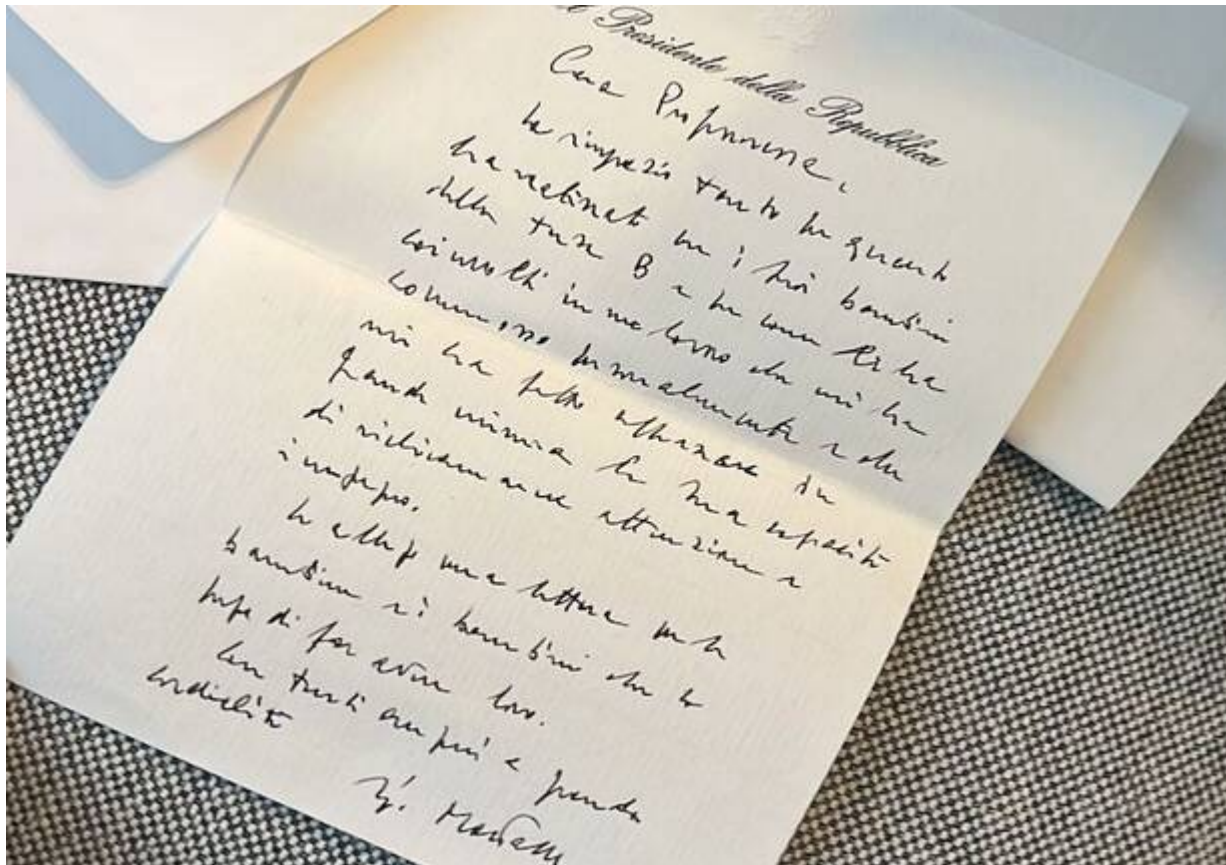 Il Presidente della Repubblica
Cara Professoressa,
La ringrazio tanto per quanto
ha realizzato con i suoi bambini
della terza B e per come li ha
coinvolti in un lavoro che mi ha
commosso personalmente e che
mi ha fatto apprezzare in
grande misura la sua capacità
di richiamarne attenzione e
impegno.
Le allego una lettera per le
bambine e i bambini che la
prego di far avere loro.
Con tanti auguri e grande
cordialità
S. Mattarella